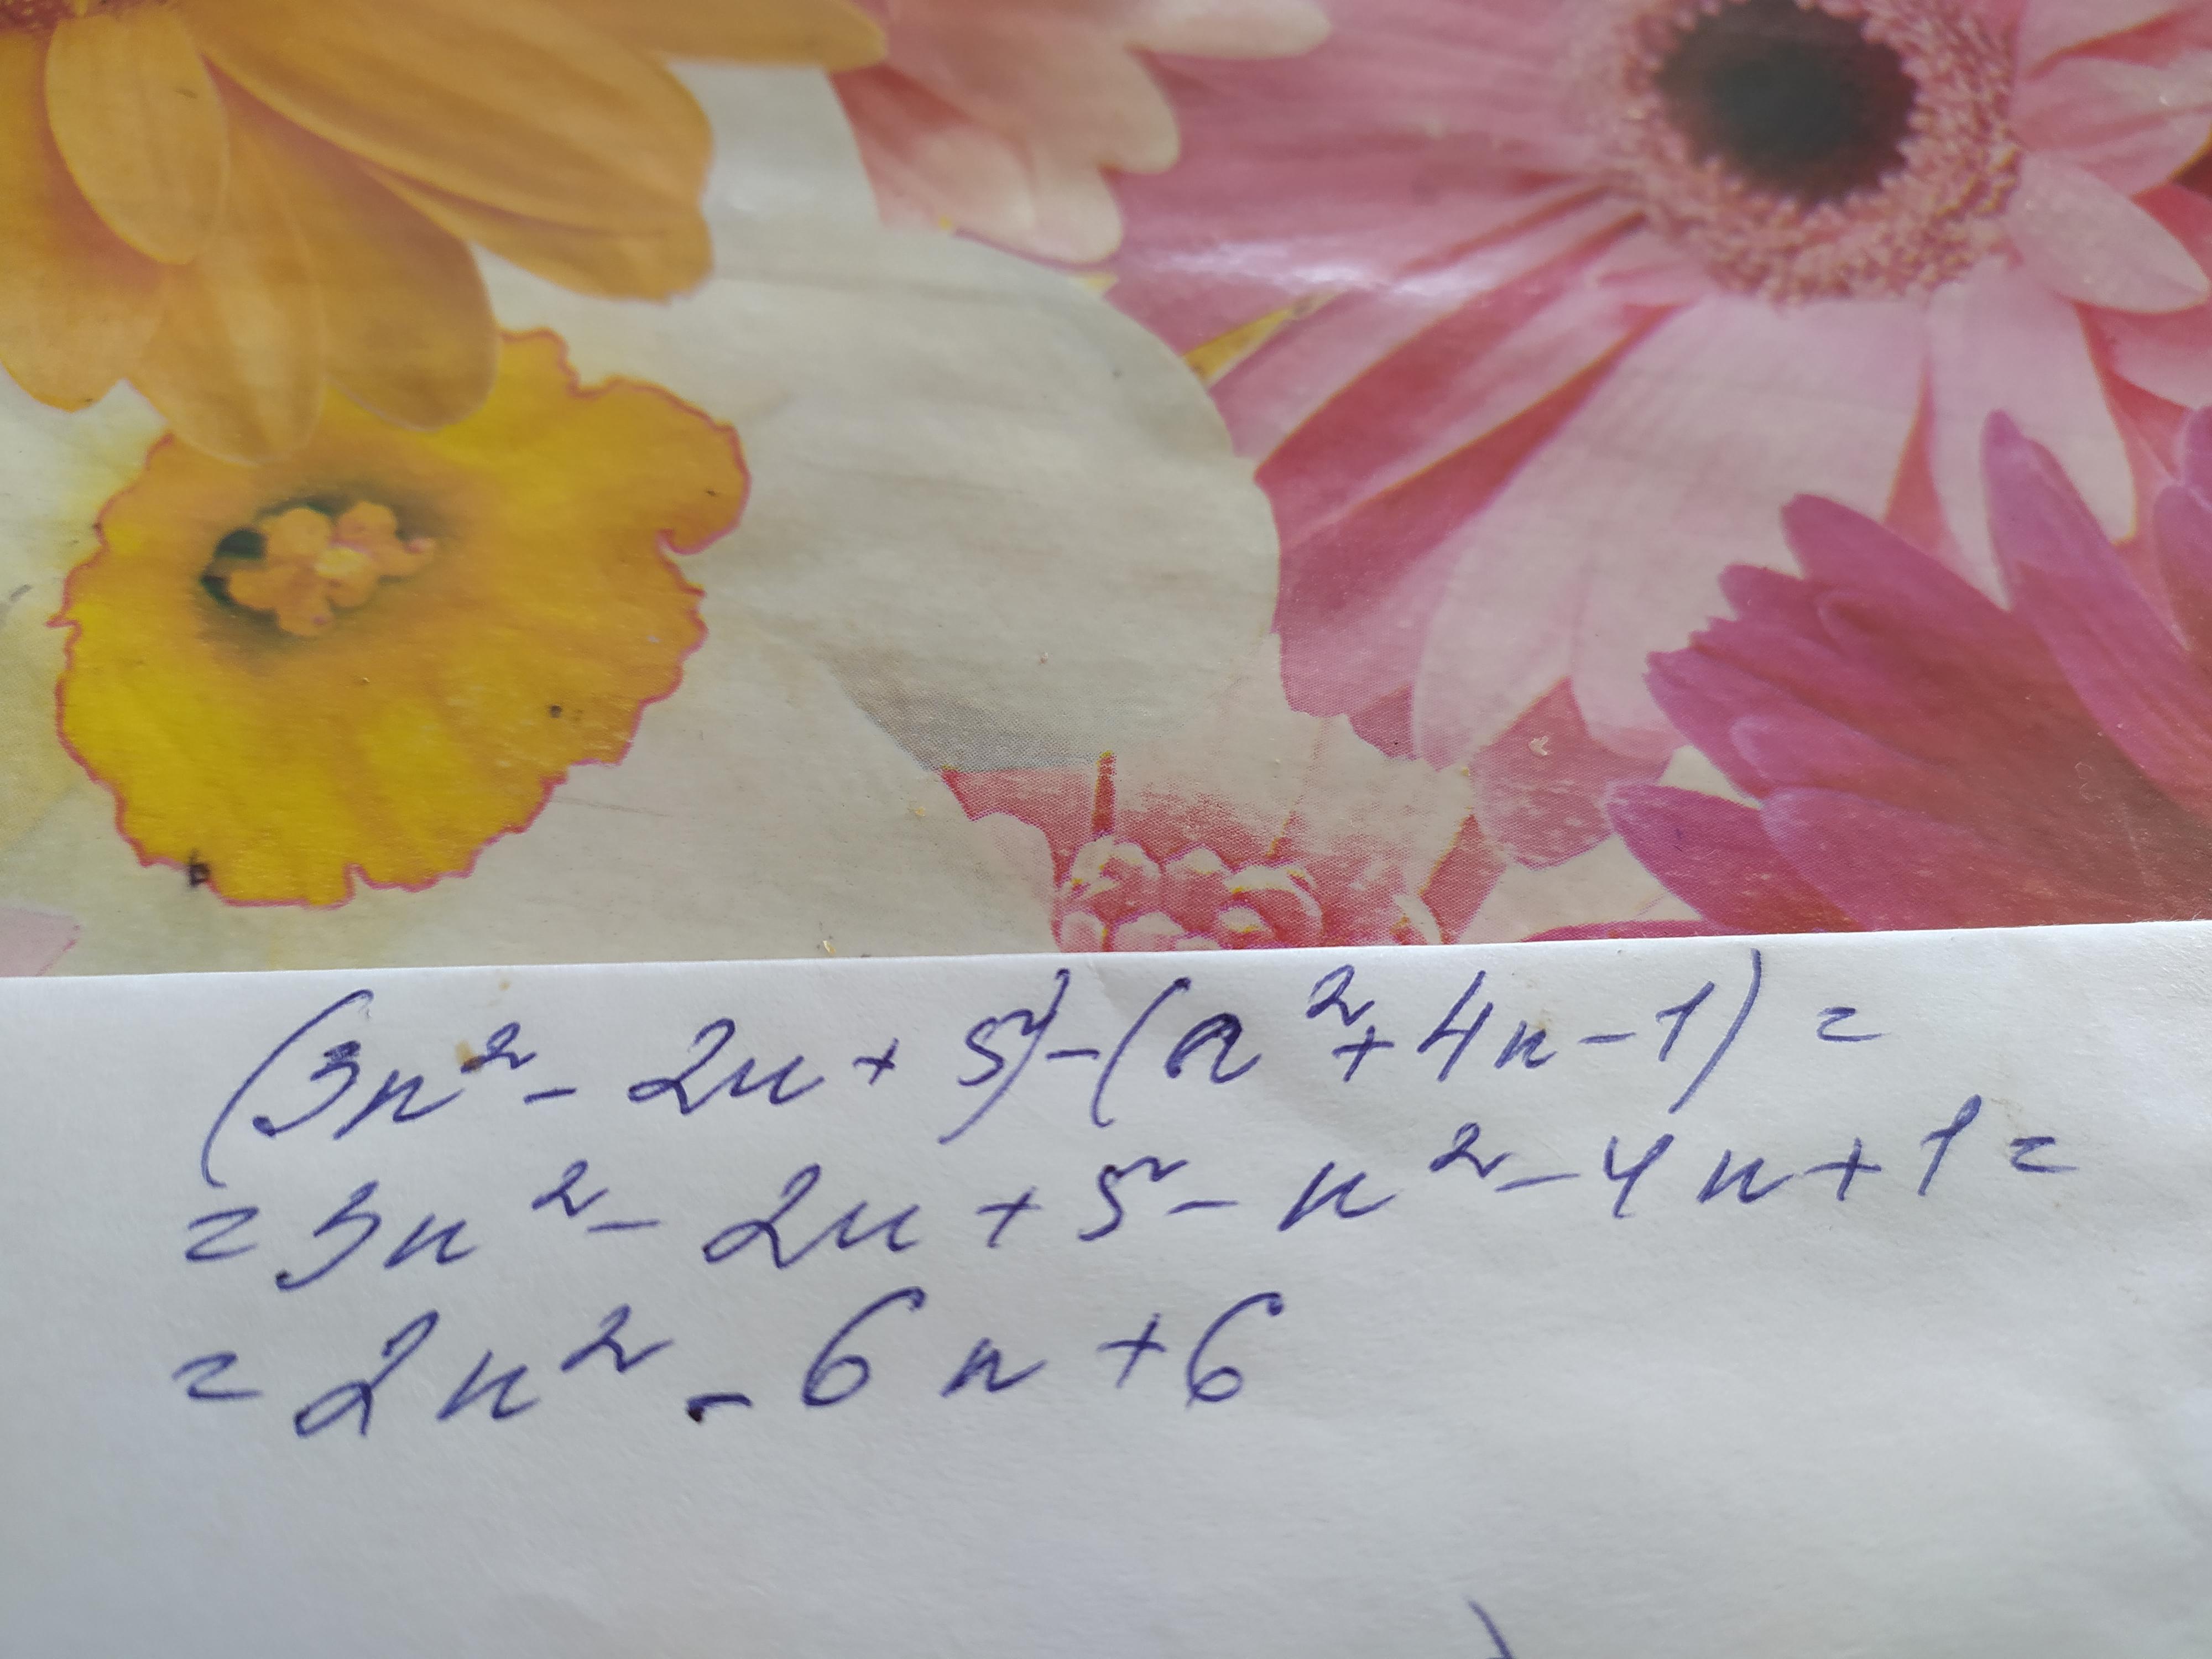 (3n² - 2n + 5) - (n² + 4n - 1) =
= 3n² - 2n + 5 - n² - 4n + 1 =
= 2n² - 6n + 6